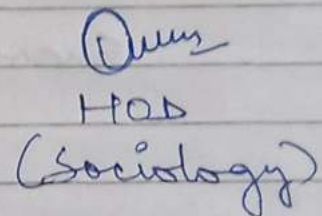 HOD
(Sociology)